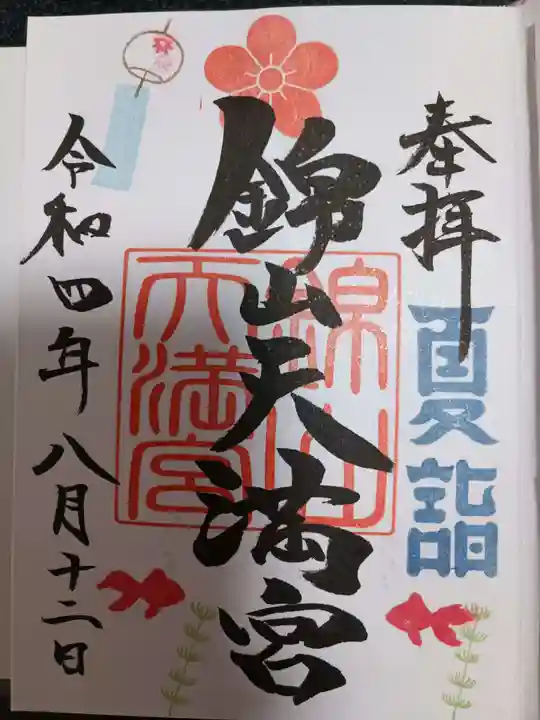 奉拝
夏詣
錦山天満宮
錦山
天満宮
令和四年八月十二日